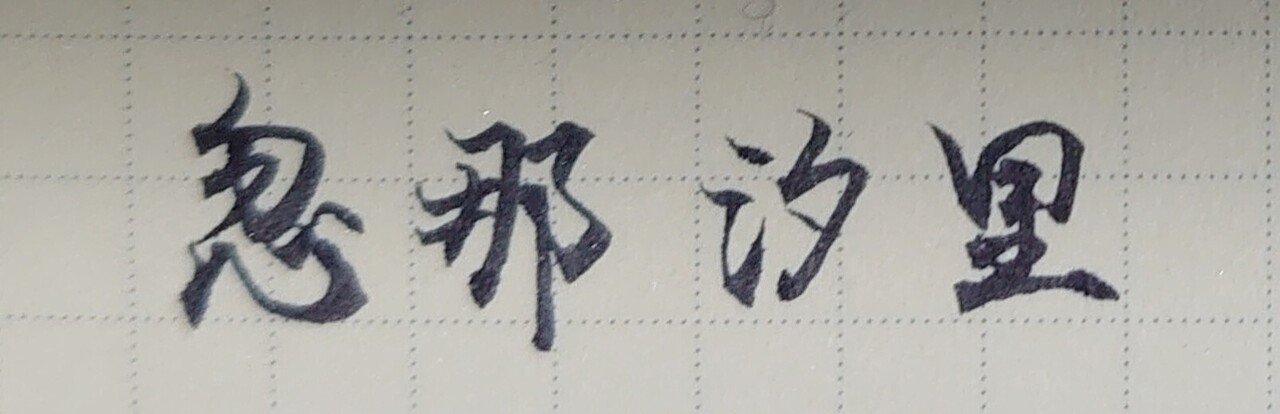 忽那汐里